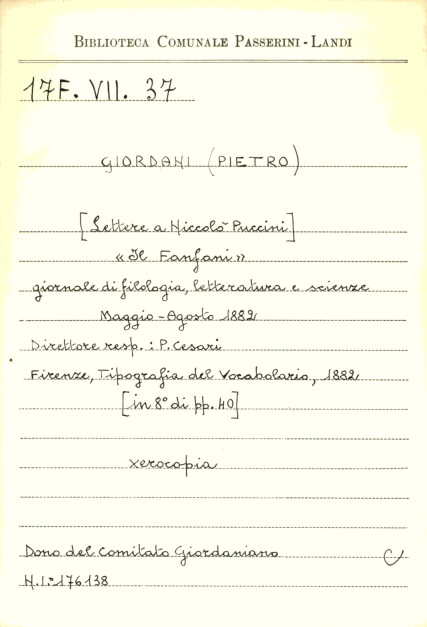 BIBLIOTECA COMUNALE PASSERINI - LANDI
17F. VII. 37
GIORDANI (PIETRO)
[Lettere a Niccolò Puccini]
« Il Fanfani »
giornale di filologia, letteratura e scienze
Maggio - Agosto 1882
Direttore resp. : P. Cesari
Firenze, Tipografia del Vocabolario, 1882
[in 8° di pp. 40]
xerocopia
Dono del Comitato Giordaniano
N.I. 176138